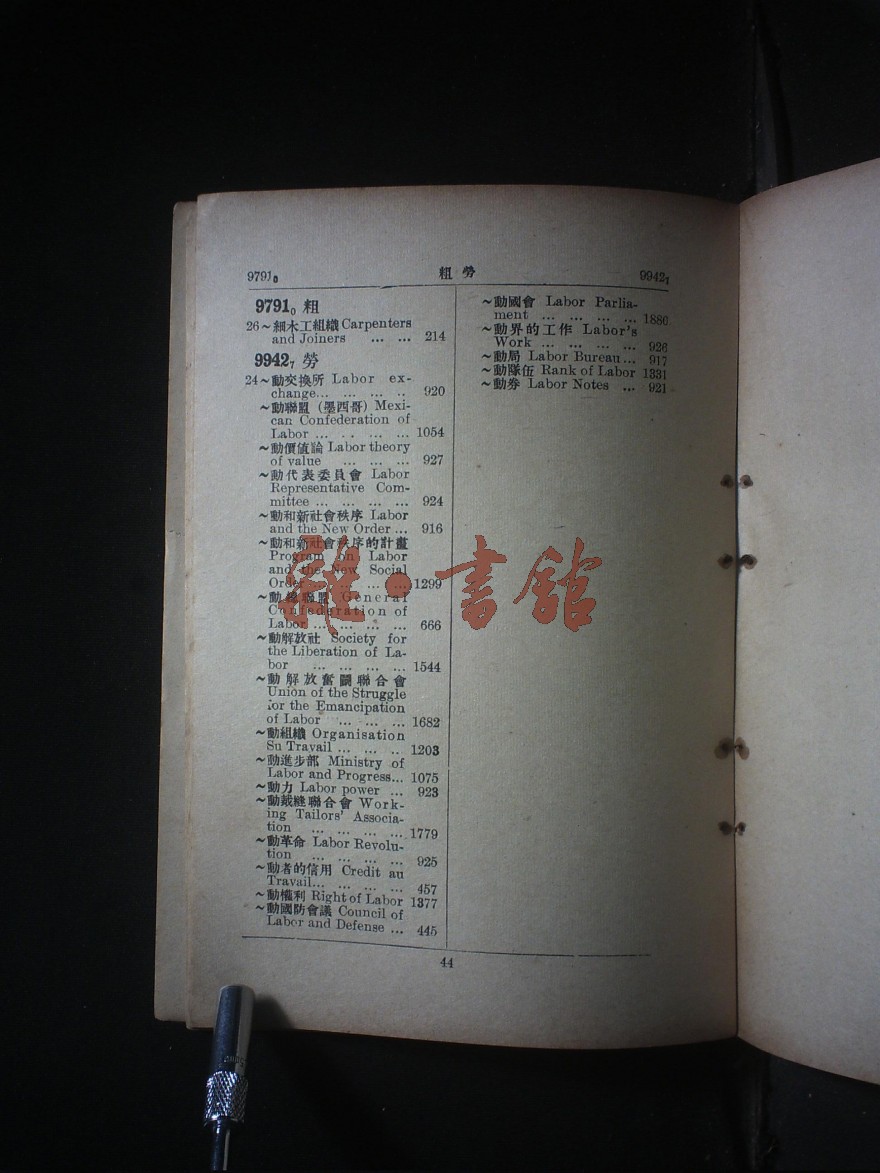 9791₀ 粗勞 9942₇
9791₀ 粗
26~細木工組織 Carpenters
and Joiners ... ... 214
9942₇ 勞
24~動交換所 Labor ex-
change... ... ... .. 920
~動聯盟 (墨西哥) Mexi-
can Confederation of
Labor ... . . ... ... 1054
~動價值論 Labor theory
of value ... ... ... 927
~動代表委員會 Labor
Representative Com-
mittee ... ... ... ... 924
~動和新社會秩序 Labor
and the New Order ... 916
~動和新社會秩序的計畫
Program on Labor
and the New Social
Order ... ... ... ... 1299
~動總聯盟 General
Confederation of
Labor ... ... ... ... 666
~動解放社 Society for
the Liberation of La-
bor ... ... ... ... 1544
~動解放奮鬭聯合會
Union of the Struggle
for the Emancipation
of Labor ... ... ... 1682
~動組織 Organisation
Su Travail ... ... .. 1203
~動進步部 Ministry of
Labor and Progress... 1075
~動力 Labor power ... 923
~動裁縫聯合會 Work-
ing Tailors' Associa-
tion ... ... ... ... 1779
~動革命 Labor Revolu-
tion ... ... ... ... 925
~動者的信用 Credit au
Travail... ... ... ... 457
~動權利 Right of Labor 1377
~動國防會議 Council of
Labor and Defense ... 445
~動國會 Labor Parlia-
ment ... ... ... ... 1880
~動界的工作 Labor's
Work ... ... ... ... 926
~動局 Labor Bureau ... 917
~動隊伍 Rank of Labor 1331
~動券 Labor Notes ... 921
44
書館